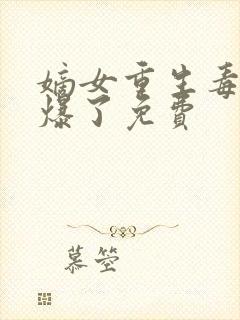 嫡女重生毒
爆了免费
慕箜